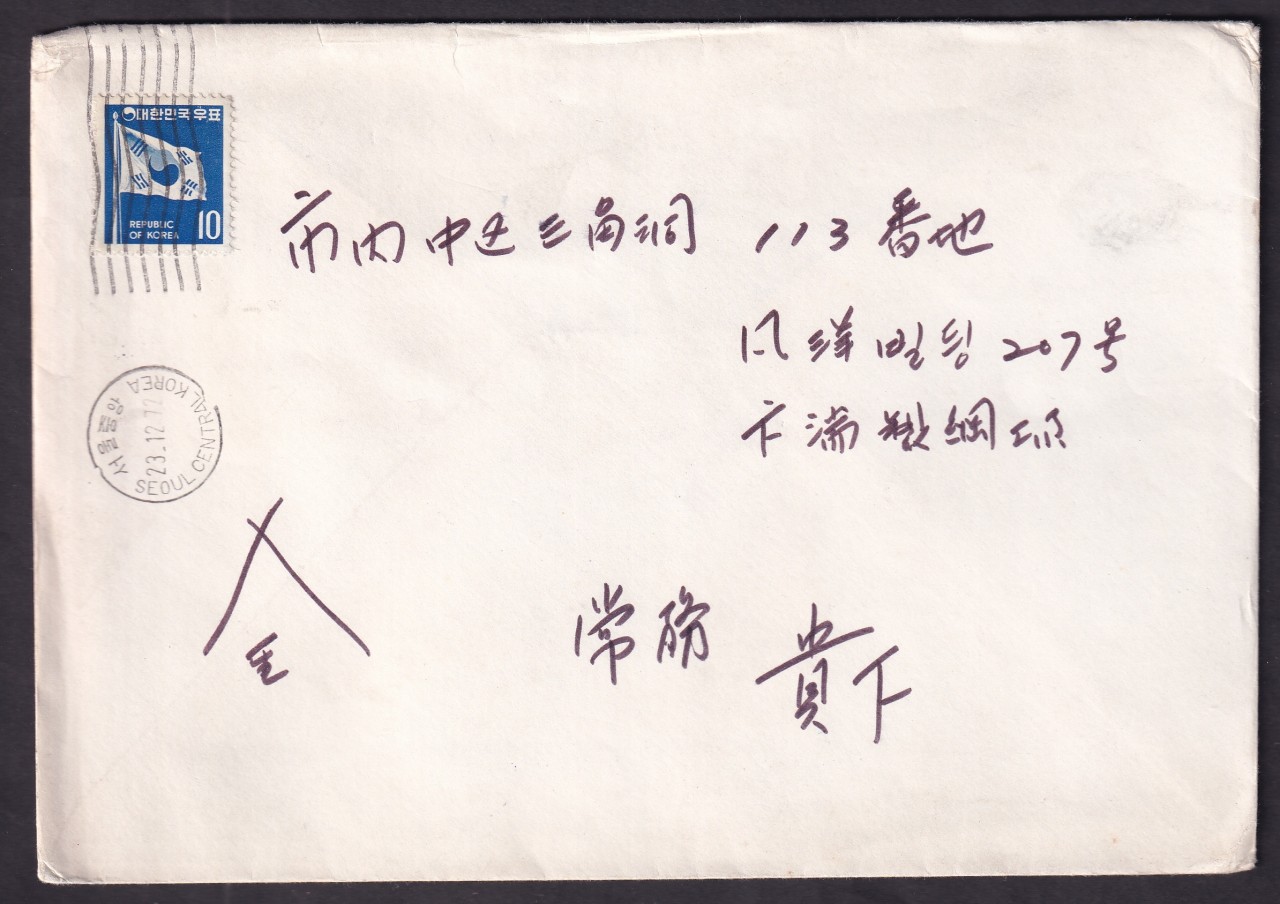 대한민국우표
REPUBLIC
OF KOREA
10
SEOUL CENTRAL KOREA
23.12.72
市内 中区 三角洞 113 番地
風洋빌딩 207号
金 常務 貴下